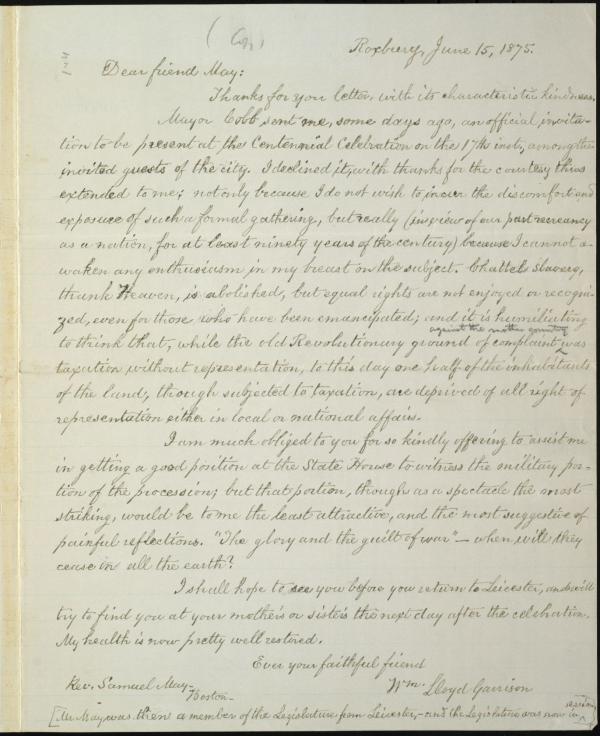 Roxbury, June 15, 1875.
Dear friend May:
Thanks for your letter, with its characteristic kindness.
Mayor Cobb sent me, some days ago, an official invita-
tion to be present at the Centennial Celebration on the 17th inst., among the
invited guests of the city. I declined it, with thanks for the courtesy thus
extended to me; not only because I do not wish to incur the discomfort and
exposure of such a formal gathering, but really (in view of our past recreancy
as a nation, for at least ninety years of the century) because I cannot a-
waken any enthusiasm in my breast on the subject. Chattel slavery,
thank Heaven, is abolished, but equal rights are not enjoyed or recogni-
zed, even for those who have been emancipated; and it is humiliating
to think that, while the old Revolutionary ground of complaint against the mother country was
taxation without representation, to this day one half of the inhabitants
of the land, though subjected to taxation, are deprived of all right of
representation either in local or national affairs.
I am much obliged to you for so kindly offering to assist me
in getting a good position at the State House to witness the military por-
tion of the procession; but that portion, though as a spectacle the most
striking, would be to me the least attractive, and the most suggestive of
painful reflections. "The glory and the guilt of war" — when will they
cease in all the earth?
I shall hope to see you before you return to Leicester, and will
try to find you at your mother's or sister's the next day after the celebration.
My health is now pretty well restored.
Ever your faithful friend
Wm. Lloyd Garrison
Rev. Samuel May—
Boston—
[Mr. May was then a member of the Legislature from Leicester,—and the Legislature was now in session